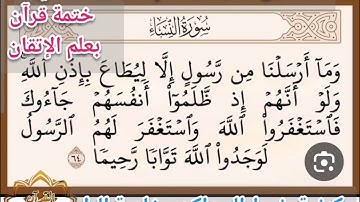 ختمة قرآن
بعلم الإتقان
سُورَةُ النِّسَاءِ
وَمَآ أَرْسَلْنَا مِن رَّسُولٍ إِلَّا لِيُطَاعَ بِإِذْنِ اللَّهِ
وَلَوْ أَنَّهُمْ إِذ ظَّلَمُوٓا۟ أَنفُسَهُمْ جَآءُوكَ
فَٱسْتَغْفَرُوا۟ ٱللَّهَ وَٱسْتَغْفَرَ لَهُمُ ٱلرَّسُولُ
لَوَجَدُوا۟ ٱللَّهَ تَوَّابًا رَّحِيمًا ٦٤